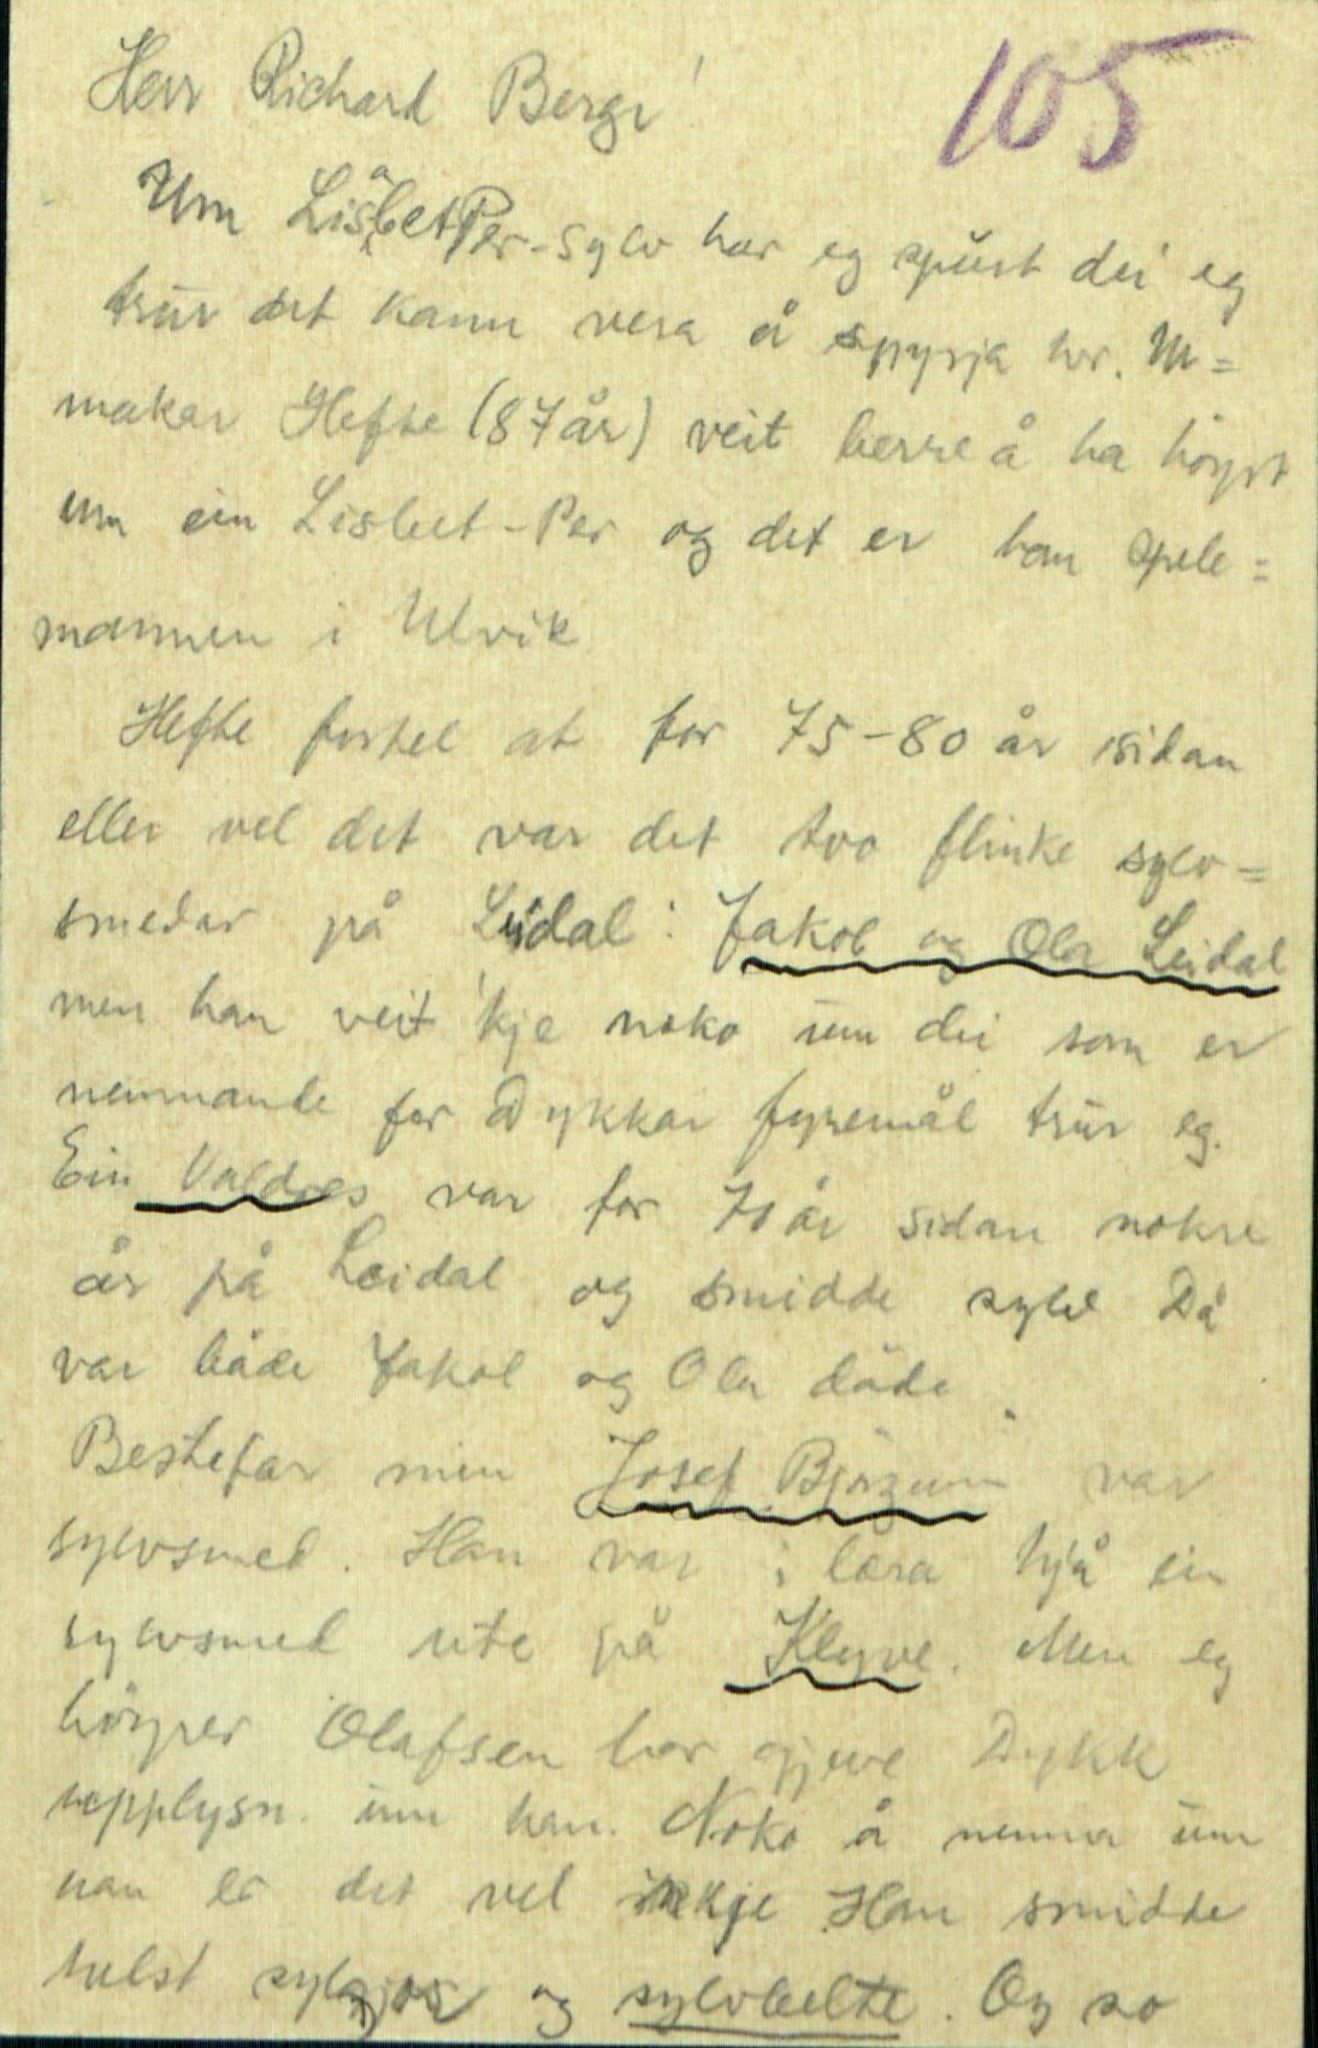 105
Herr Richard Berge!
Um LisabetPer-sylv har eg spurt dei eg
trur det kann vera å spyrja hr. M=
makar Hefte (87 år) veit berre å ha höyrt
um ein Lisbet-Per og det er han spele=
mannen i Ulvik
Hefte fortel at for 75-80 år sidan
eller vel det var det tvo flinke sylv=
smedar på Leidal: Jakob og Ola Leidal
men han veit 'kje noko um dei som er
nemnande for Dykkar fyremål trur eg.
Ein Valdres var for 70 år sidan nokre
år på Leidal og smidde sylv Då
var både Jakob og Ola döde.
Bestefar min Josef Björgum var
sylvsmed. Han var i læra hjå ein
sylvsmed ute på Klyve. Men eg
höyrer Olafsen har gjeve Dykk
upplysn. um han. Noko å nemna um
han er det vel inkje Han smidde
helst sylgjor og sylvbelte. Og so